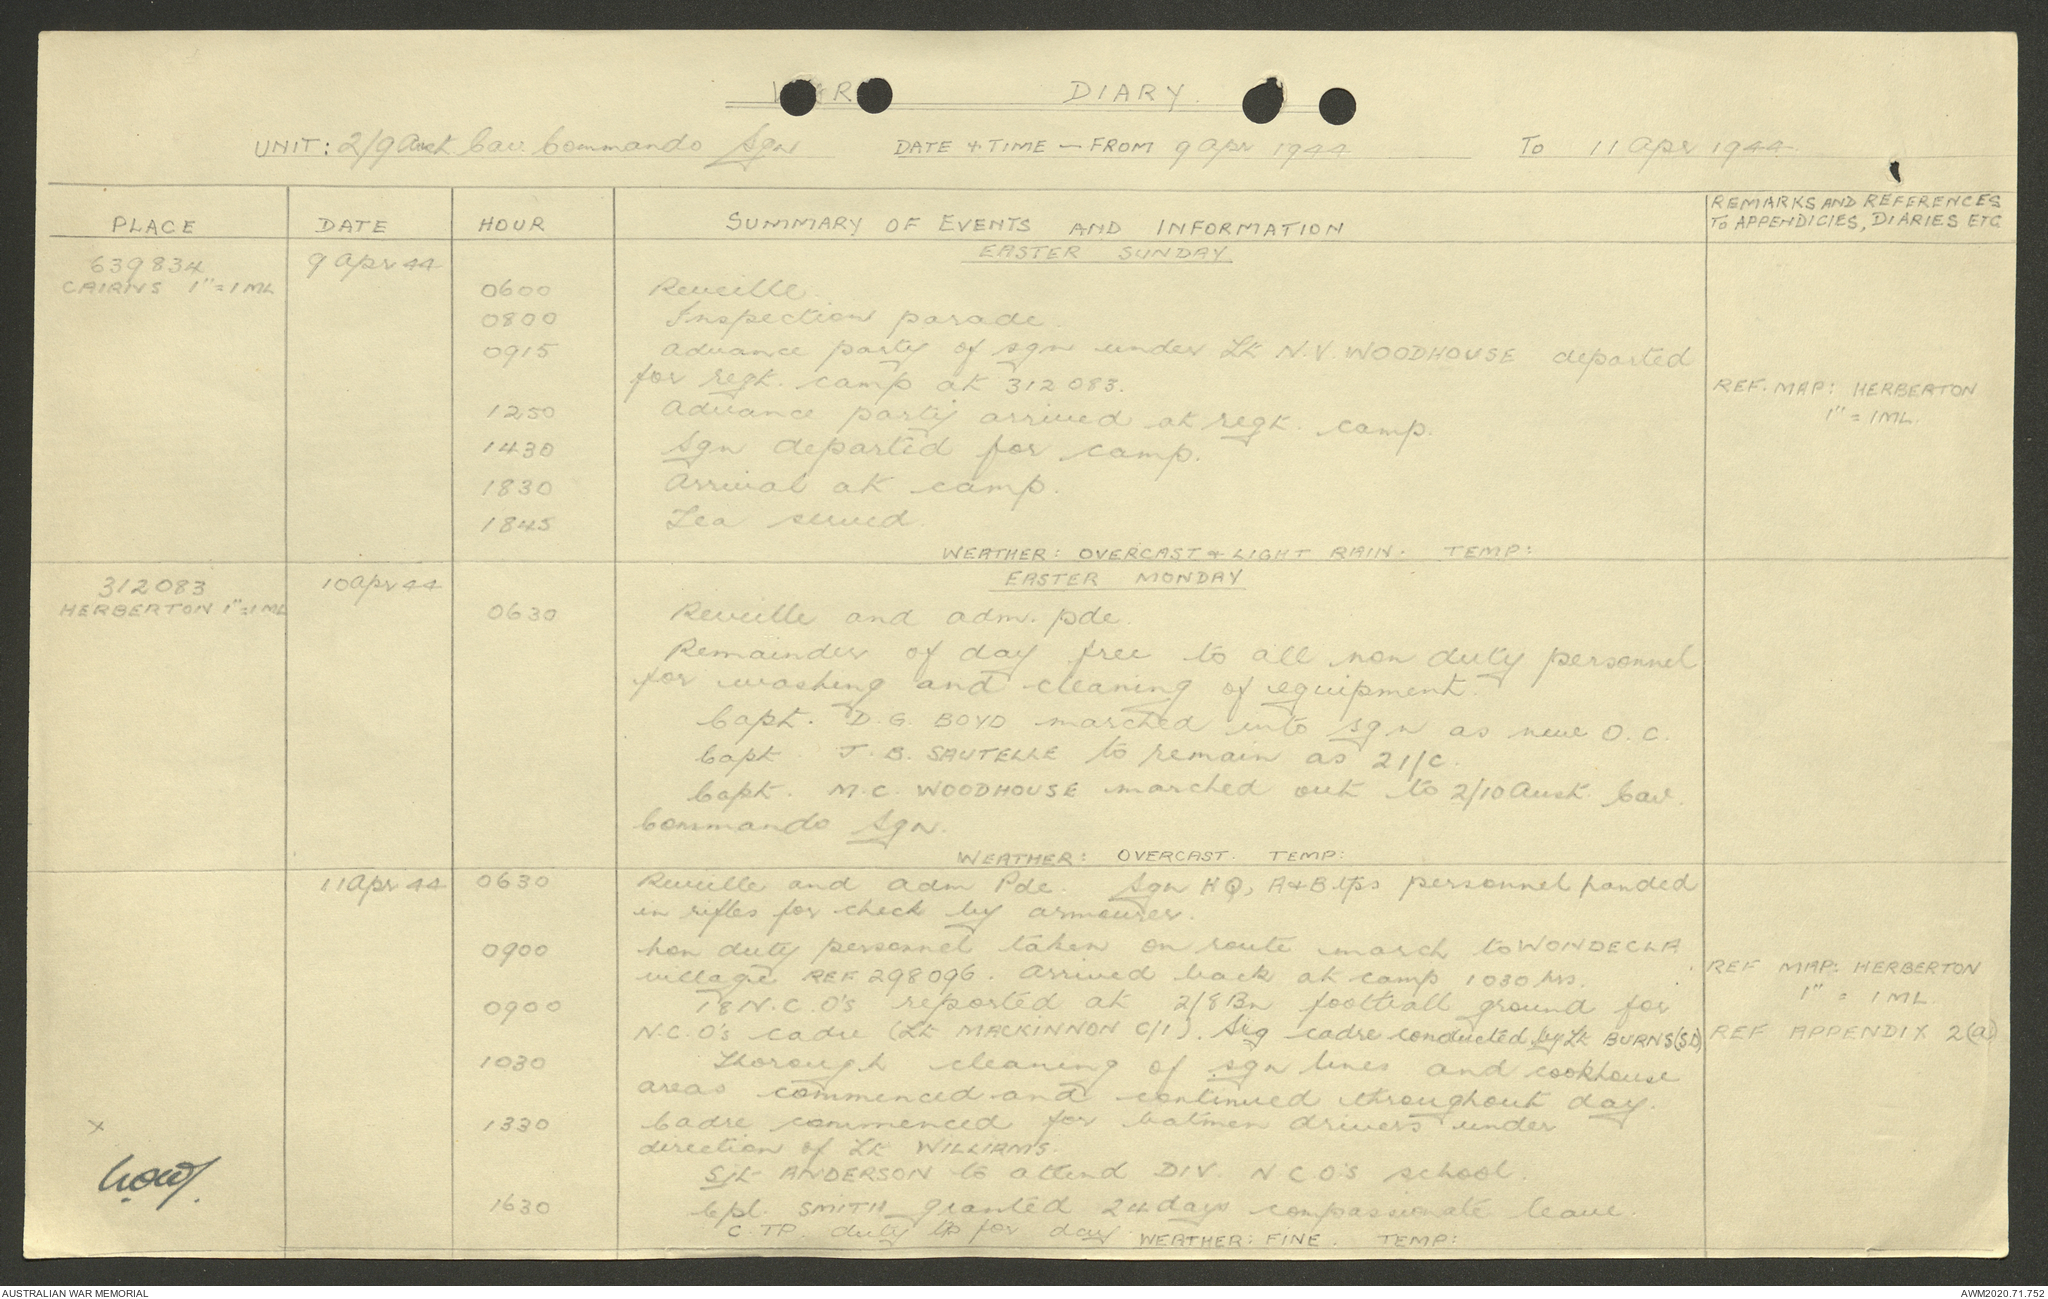 WAR DIARY.
UNIT: 2/9 Aust. Cav. Commando Sqn DATE & TIME — FROM 9 Apr 1944 To 11 Apr 1944.
PLACE DATE HOUR SUMMARY OF EVENTS AND INFORMATION REMARKS AND REFERENCES
TO APPENDICIES, DIARIES ETC
EASTER SUNDAY
639834 9 Apr 44
CAIRNS 1"=1ML
0600 Reveille.
0800 Inspection parade.
0915 Advance party of sqn under Lt N.V. WOODHOUSE departed
for regt. camp at 312083.
REF. MAP: HERBERTON
1" = 1ML.
1250 Advance party arrived at regt. camp.
1430 Sqn departed for camp.
1830 Arrival at camp.
1845 Tea served.
WEATHER: OVERCAST & LIGHT RAIN. TEMP:
312083 10 Apr 44 EASTER MONDAY
HERBERTON 1"=1ML
0630 Reveille and adm. pde.
Remainder of day free to all non duty personnel
for washing and cleaning of equipment.
Capt. D.G. BOYD marched into sqn as new O.C.
Capt J.B. SAUTELLE to remain as 2I/C.
Capt. M.C. WOODHOUSE marched out to 2/10 Aust. Cav.
Commando Sqn.
WEATHER: OVERCAST. TEMP:
11 Apr 44 0630 Reveille and adm Pde. Sqn HQ, A & B tps personnel handed
in rifles for check by armourer.
0900 Non duty personnel taken on route march to WONDECLA
village REF 298096. Arrived back at camp 1030 hrs.
REF MAP: HERBERTON
1" = 1ML.
0900 18 N.C.O's reported at 2/8 Bn football ground for
N.C.O's cadre (Lt MACKINNON C/I). Sig cadre conducted by Lt BURNS (SD)
REF APPENDIX 2(a)
1030 Thorough cleaning of sqn lines and cookhouse
areas commenced and continued throughout day.
1330 Cadre commenced for batmen drivers under
direction of Lt WILLIAMS.
Sjt ANDERSON to attend DIV. N C O's school.
1630 Cpl. SMITH granted 24 days compassionate leave.
C. TP. duty tp for day WEATHER: FINE. TEMP:
x
AUSTRALIAN WAR MEMORIAL AWM2020.71.752